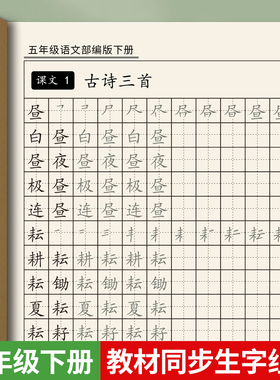 五年级语文部编版下册
课文 1 古诗三首
昼
白昼白昼白昼
昼夜昼夜昼夜
极昼极昼极昼
连昼连昼连昼
耘
耕耘耕耘耕耘
耘锄耘锄耘锄
夏耘夏耘夏耘
耘耔耘耔耘耔
年级下册 教材同步生字